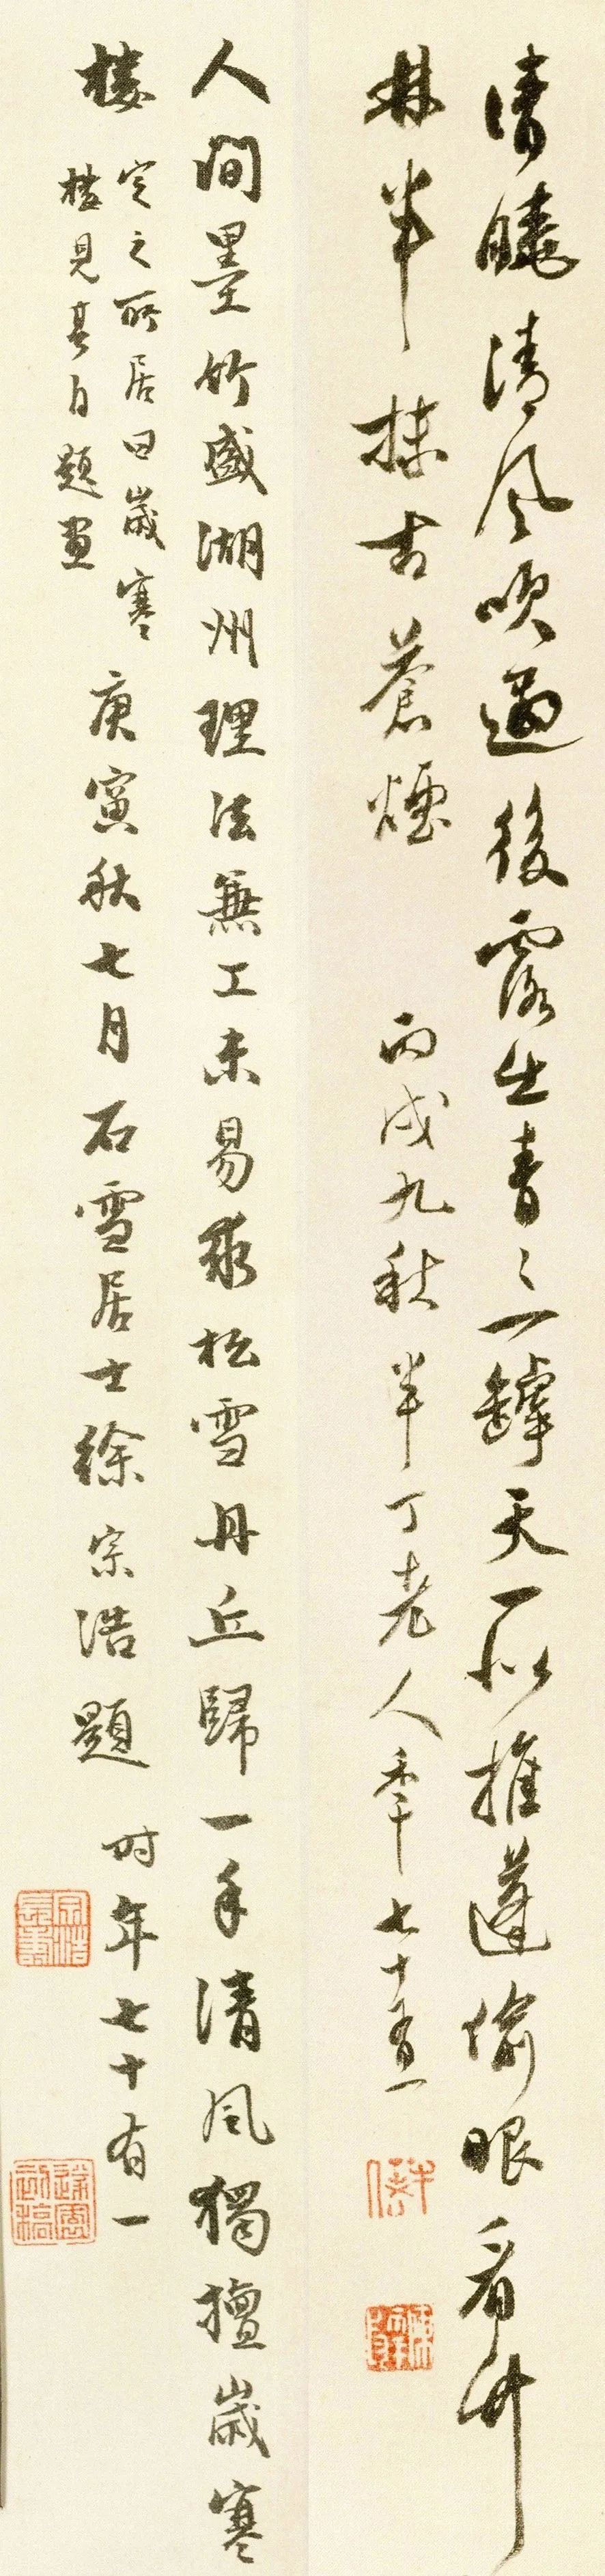 清曉清風吹過後露出青〻一罅天一似推蓬偷眼看竹
林半抹古蒼煙 丙戌九秋半丁老人秊七十有一
人間墨竹盛湖州理法無工未易求松雪丹丘歸一手清風獨擅歲寒
樓
定之所居曰歲寒
樓見其自題畫
庚寅秋七月石雪居士徐宗浩題
时年七十有一